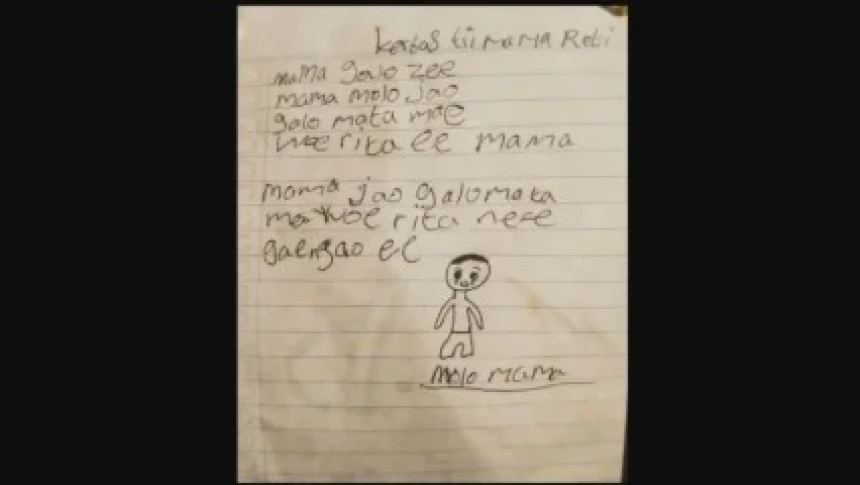 kertas tii mama Reti
mama galo zee
mama molo jao
galo mata mae
woe rita ee mama
mama jao galo mata
mae woe rita nere
gaengao ee
molo mama